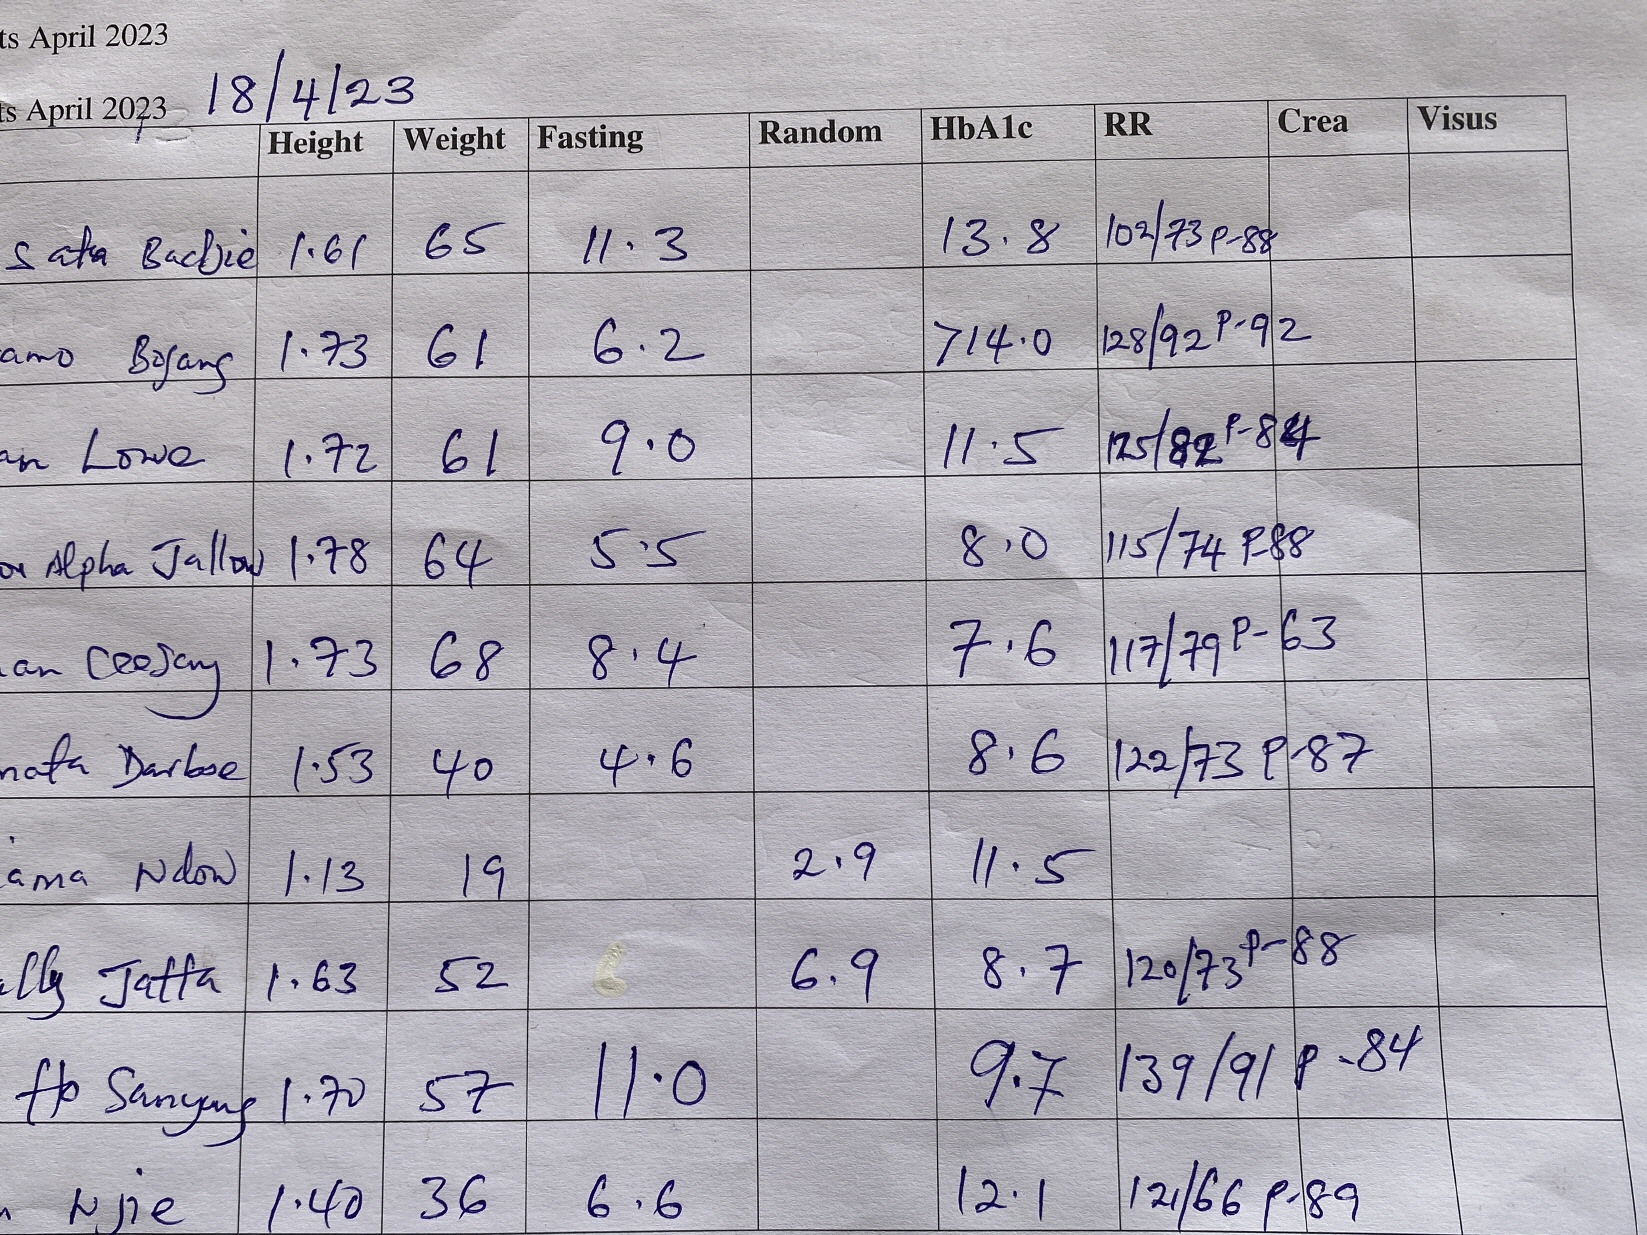 ts April 2023
ts April 2023 18/4/23
Height Weight Fasting Random HbA1c RR Crea Visus
Sata Badjie 1.61 65 11.3 13.8 102/73 P-88
amo Bojang 1.73 61 6.2 >14.0 128/92 P-92
an Lowe 1.72 61 9.0 11.5 125/82 P-84
or Alpha Jallow 1.78 64 5.5 8.0 115/74 P-88
an Ceesay 1.73 68 8.4 7.6 117/79 P-63
nata Darboe 1.53 40 4.6 8.6 122/73 P-87
iama Ndow 1.13 19 2.9 11.5
ally Jatta 1.63 52 6.9 8.7 120/73 P-88
Sanyang 1.70 57 11.0 9.7 139/91 P-84
Njie 1.40 36 6.6 12.1 121/66 P-89